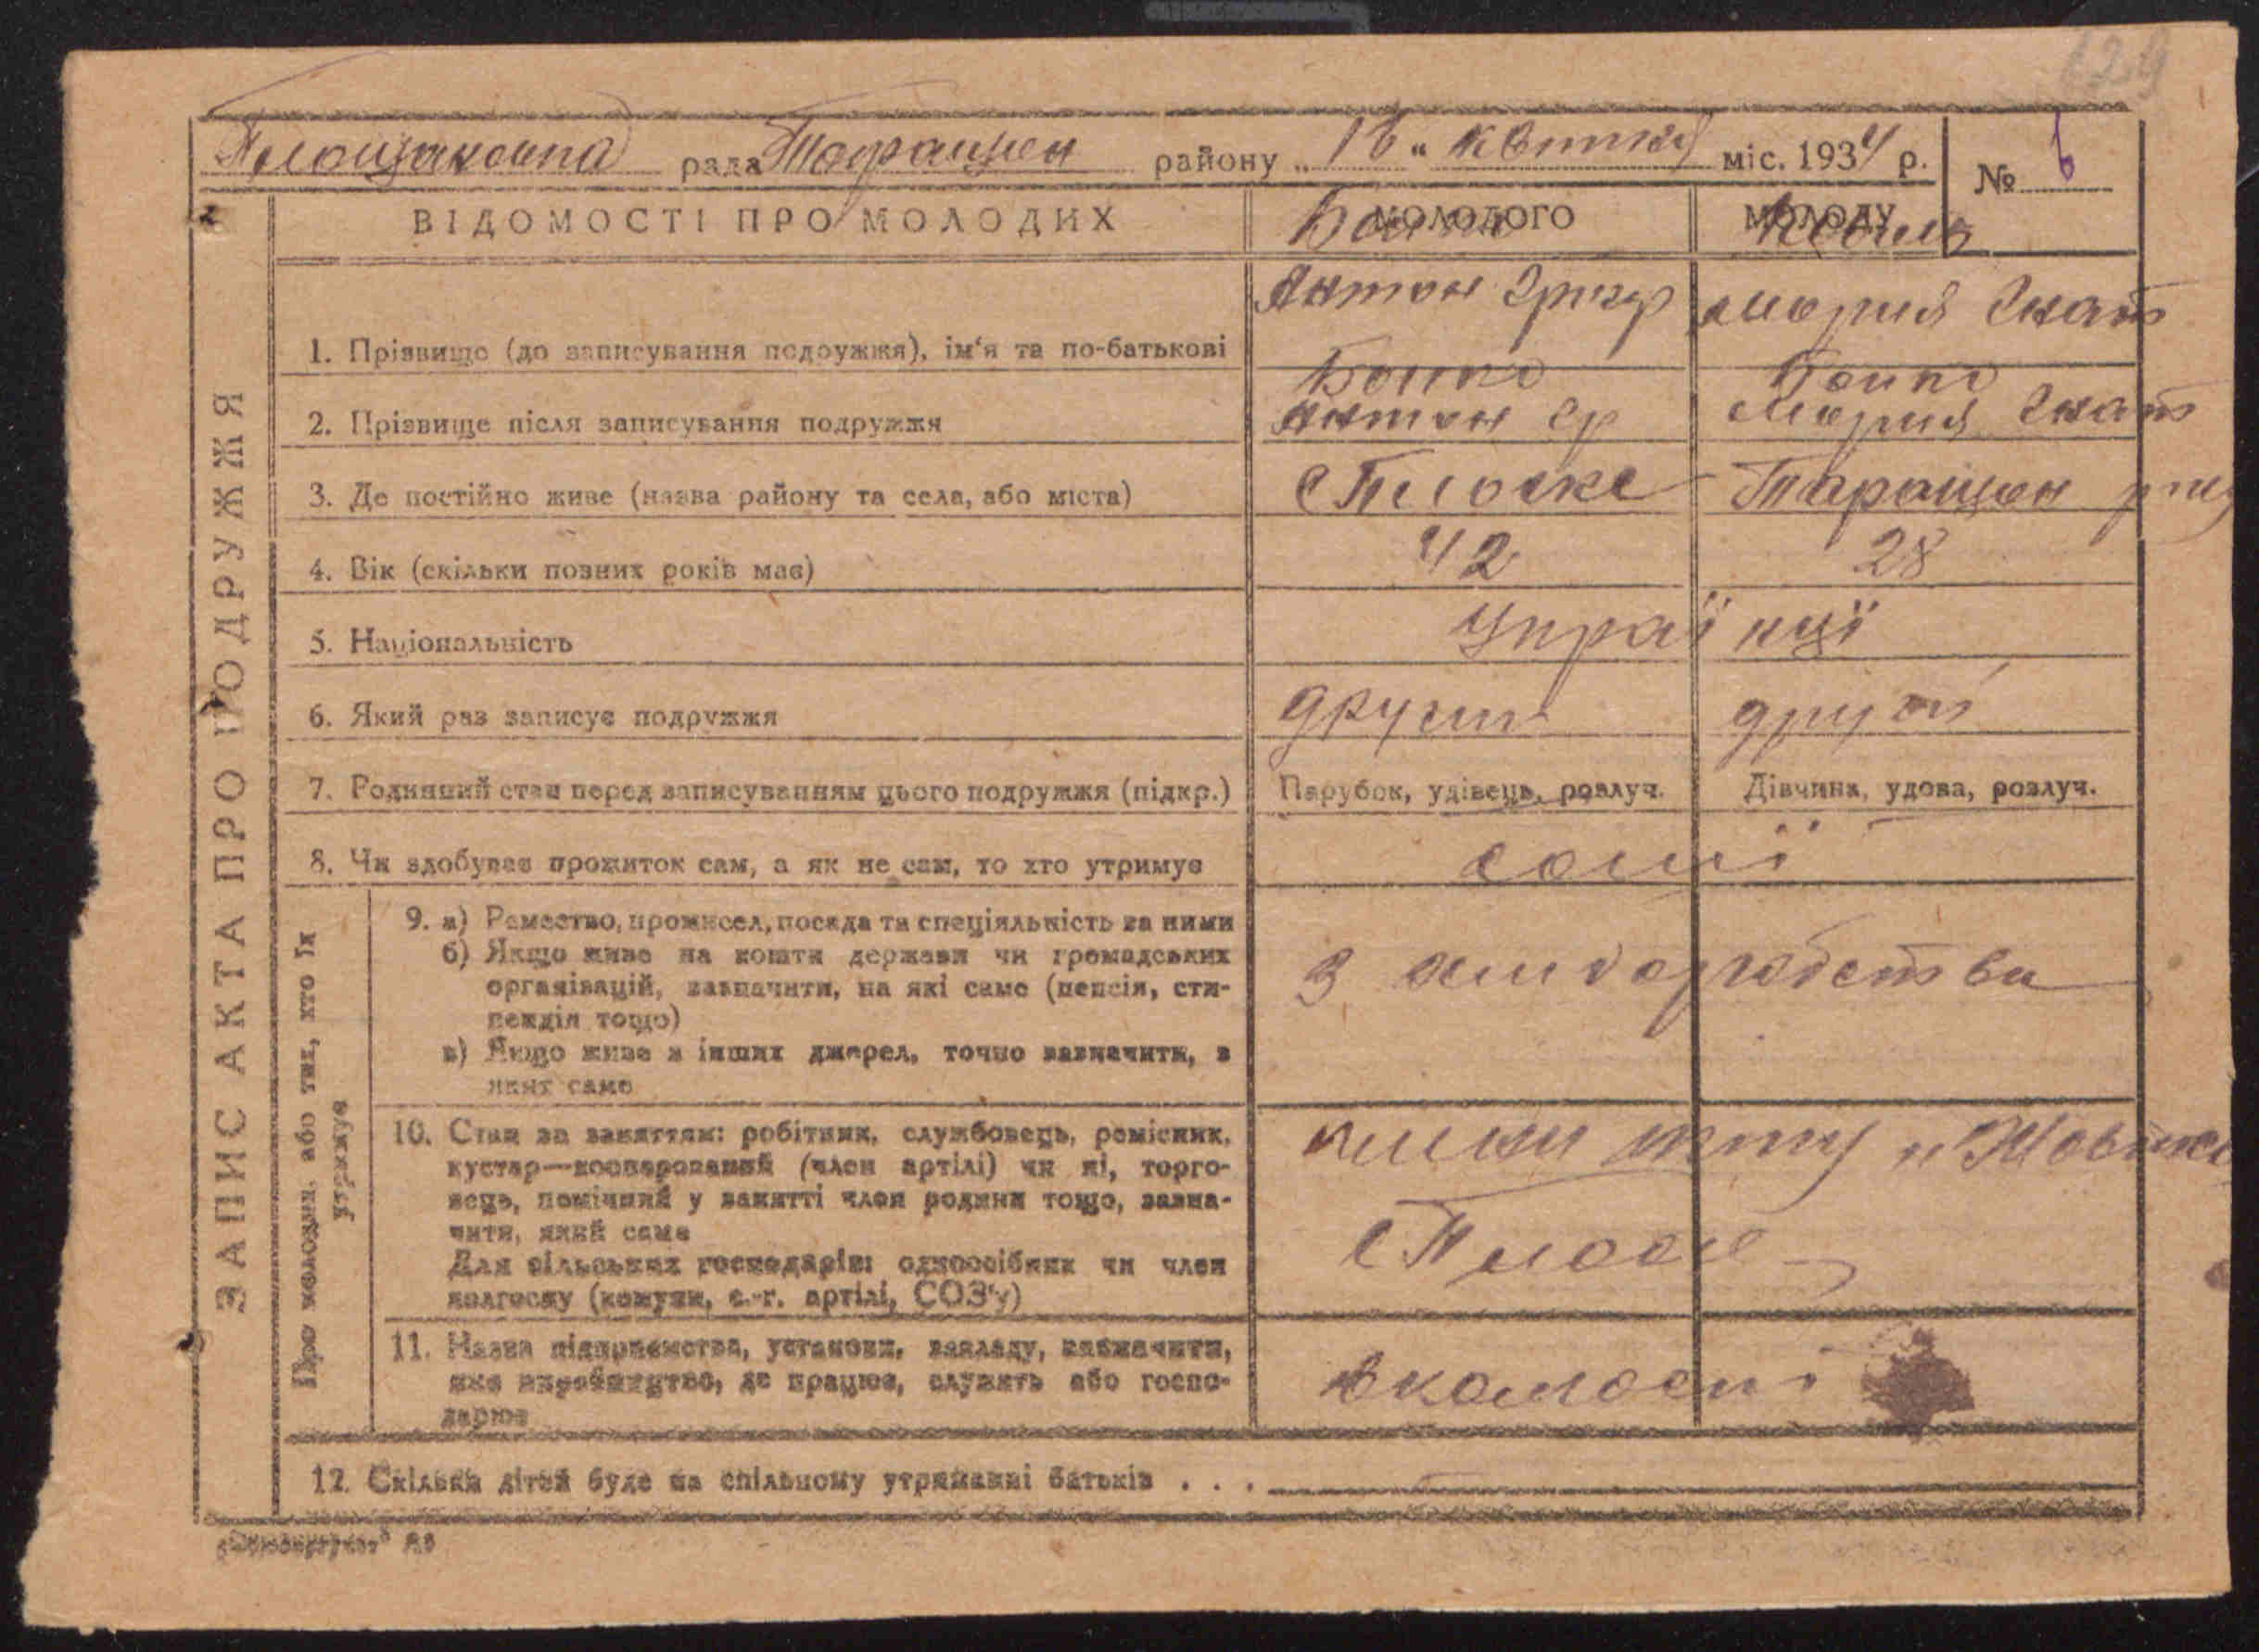 129
рада Таращан району „ 16 “ квитня міс. 1934 р. № 6
ВІДОМОСТІ ПРО МОЛОДИХ МОЛОДОГО МОЛОДУ
Антон Григр Мария Гнат
1. Прізвище (до записування подружжя), ім'я та по-батькові
Бойко Бойко
2. Прізвище після записування подружжя Антон Гр Мария Гнат
3. Де постійно живе (назва району та села, або міста) с Плоске Таращан
4. Вік (скільки повних років має) 42 28
5. Національність Украї нці
6. Який раз записує подружжя другий другий
7. Родинний стан перед записуванням цього подружжя (підкр.) Парубок, удівець, розлуч. Дівчина, удова, розлуч.
8. Чи здобуває прожиток сам, а як не сам, то хто утримує самі
ЗАПИС АКТА ПРО ПОДРУЖЖЯ
Про молодих, або тих, хто їх утримує
9. а) Ремество, промисел, посада та спеціяльність за ними
б) Якщо живе на кошти держави чи громадських
організацій, зазначити, на які саме (пенсія, сти-
пендія тощо)
в) Якщо живе з інших джерел, точно зазначити, з
яких саме
з хліборобства
10. Стан за заняттям: робітник, службовець, ремісник,
кустар—кооперований (член артілі) чи ні, торго-
вець, помічний у занятті член родини тощо, зазна-
чити, який саме
Для сільських господарів: одноосібник чи член
колгоспу (комуни, с.-г. артілі, СОЗ'у)
с Плоске
11. Назва підприємства, установи, закладу, зазначити,
яке виробництво, де працює, служить або госпо-
дарює
в колгоспі
12. Скільки дітей буде на спільному утриманні батьків . . .